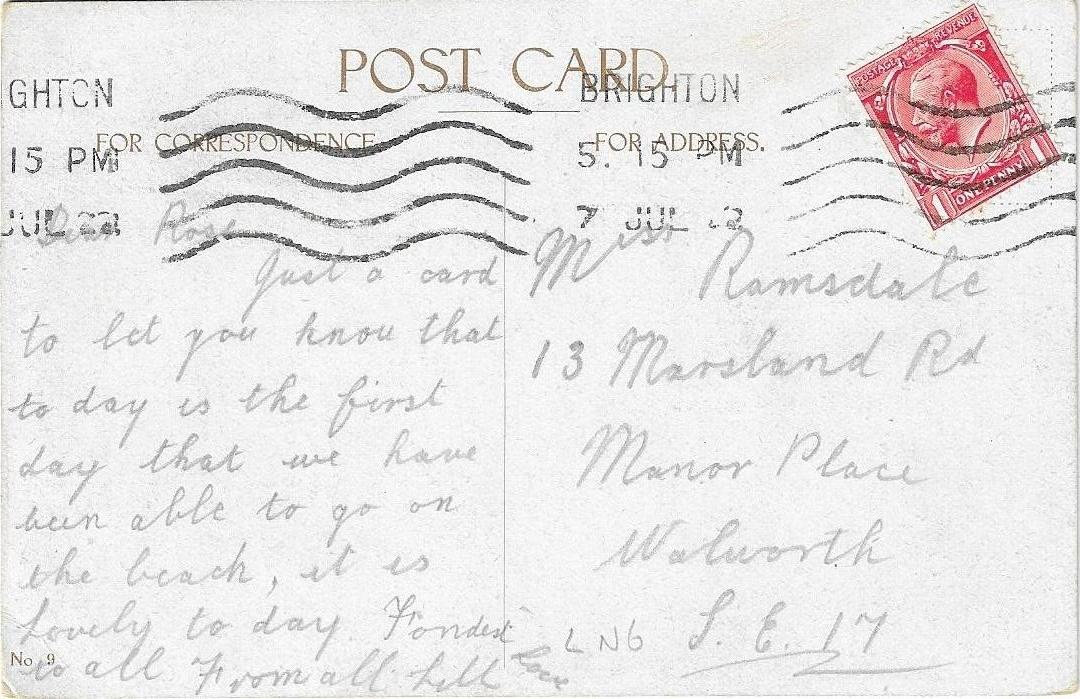 POST CARD
GHTON
BRIGHTON
POSTAGE REVENUE
FOR CORRESPONDENCE
FOR ADDRESS.
15 PM
5. 15 PM
1 ONE PENNY 1
JUL 22
7 JUL 22
Dear Rose
Just a card
to let you know that
to day is the first
day that we have
been able to go on
the beach, it is
Lovely to day Fondest
Love
to all From all Lill
No 9
Miss Ramsdale
13 Marsland Rd
Manor Place
Walworth
S. E. 17
LN6